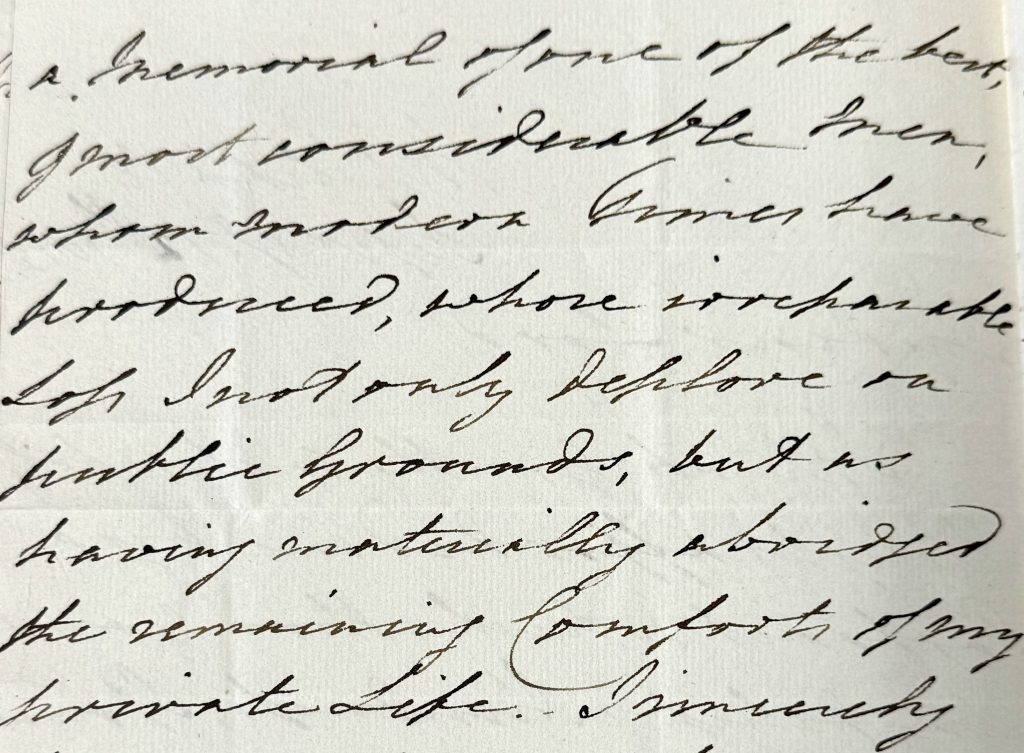 a Memorial of one of the best,
& most considerable Men,
whom modern Times have
produced, whose irreparable
Loss I not only deplore on
public Grounds, but as
having materially abridged
the remaining Comforts of my
private Life. I sincerely